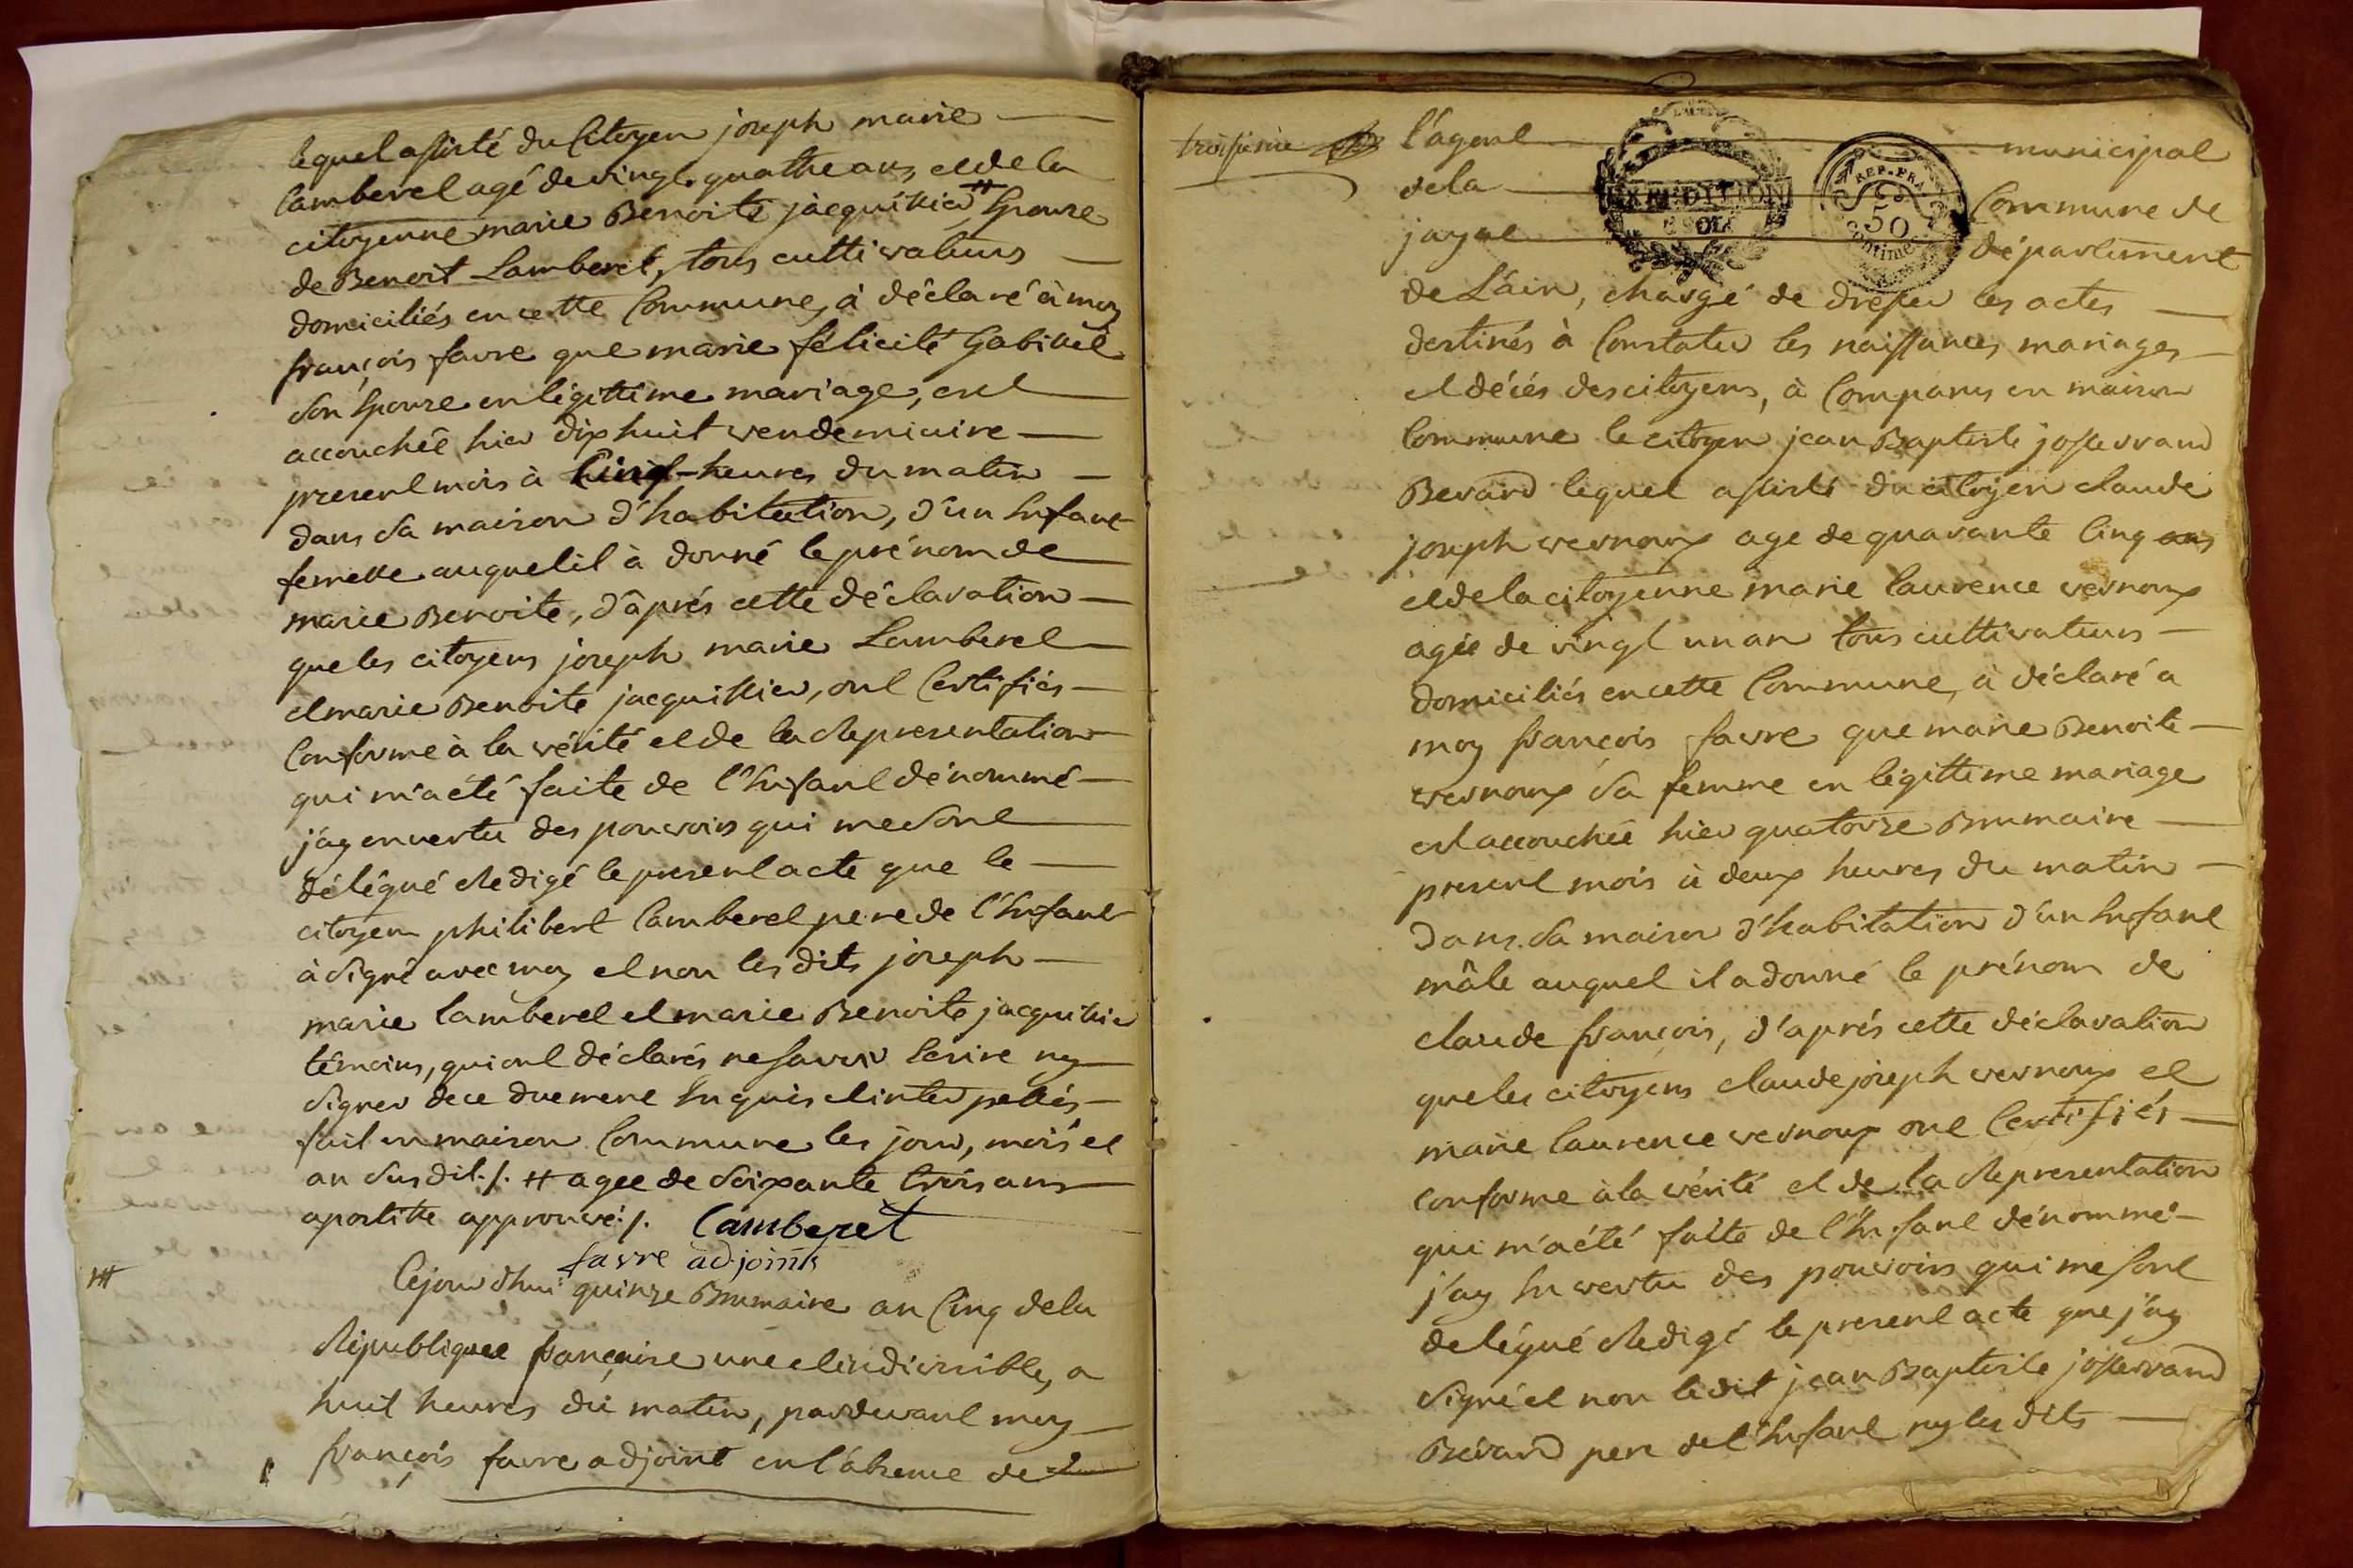 lequel assisté du Citoyen joseph marie
Lamberet agé de vingt-quatre ans, et de la
citoyenne marie Benoite jacquillier # Epouse
de Benoit Lamberet, tous cultivateurs
domiciliés en cette Commune, à déclaré à moy
françois favre que marie félicité Gabillet
Son Epouse en légittime mariage, est
accouchée hier dix huit vendemiaire
present mois à Cinq heures du matin
dans Sa maison d'habitation, d'un Enfant
femelle auquel il à donné le prénom de
marie Benoite, d'âprés cette déclaration
que les citoyens joseph marie Lamberet
et marie Benoite jacquillier, ont Certifiés
Conforme à la vérité et de la Representation
qui m'a été faite de l'Enfant dénommé
j'ay en vertu des pouvoirs qui me Sont
délégué Redigé le present acte que le
citoyen philibert Lamberet pere de l'Enfant
à Signé avec moy et non les dits joseph
marie Lamberet et marie Benoite jacquillier
témoins, qui ont déclarés ne Savoir Ecrire ny
Signer de ce duement Enquis et interpellés
fait en maison Commune les jour, mois et
an Susdit ./. # agee de Soixante trois ans
apostille approuvé ./. Lamberet
favre adjoint
# Cejourd'hui quinze Brumaire an Cinq de la
République française une et indivisible, a
huit heures du matin, pardevant moy
françois favre adjoint en l'absence de
troisieme
l'agent municipal
de la Commune de
jayat département
EXPÉDITION
REP. FRA
50
centimes
de L'ain, chargé de dresser les actes
destinés à Constater les naissances, mariages
et décés des citoyens, à Comparus en maison
Commune le citoyen jean Baptiste josserand
Bevard lequel assisté du citoyen claude
joseph vernoux age de quarante Cinq ans
et de la citoyenne marie Laurence vernoux
agée de vingt un an tous cultivateurs
domiciliés en cette Commune, à déclaré a
moy françois favre que marie Benoite
vernoux Sa femme en légittime mariage
est accouchée hier quatorze Brumaire
present mois à deux heures du matin
Dans Sa maison d'habitation d'un Enfant
mâle auquel il a donné le prénom de
claude françois, d'aprés cette déclaration
que les citoyens claude joseph vernoux et
marie Laurence vernoux ont Certifiés
Conforme à la vérité et de la Representation
qui m'a été faite de l'Enfant dénommé
j'ay En vertu des pouvoirs qui me Sont
delégué Redigé le present acte que j'ay
Signé et non ledit jean Baptiste josserand
Bévard pere de l'Enfant ny les dits